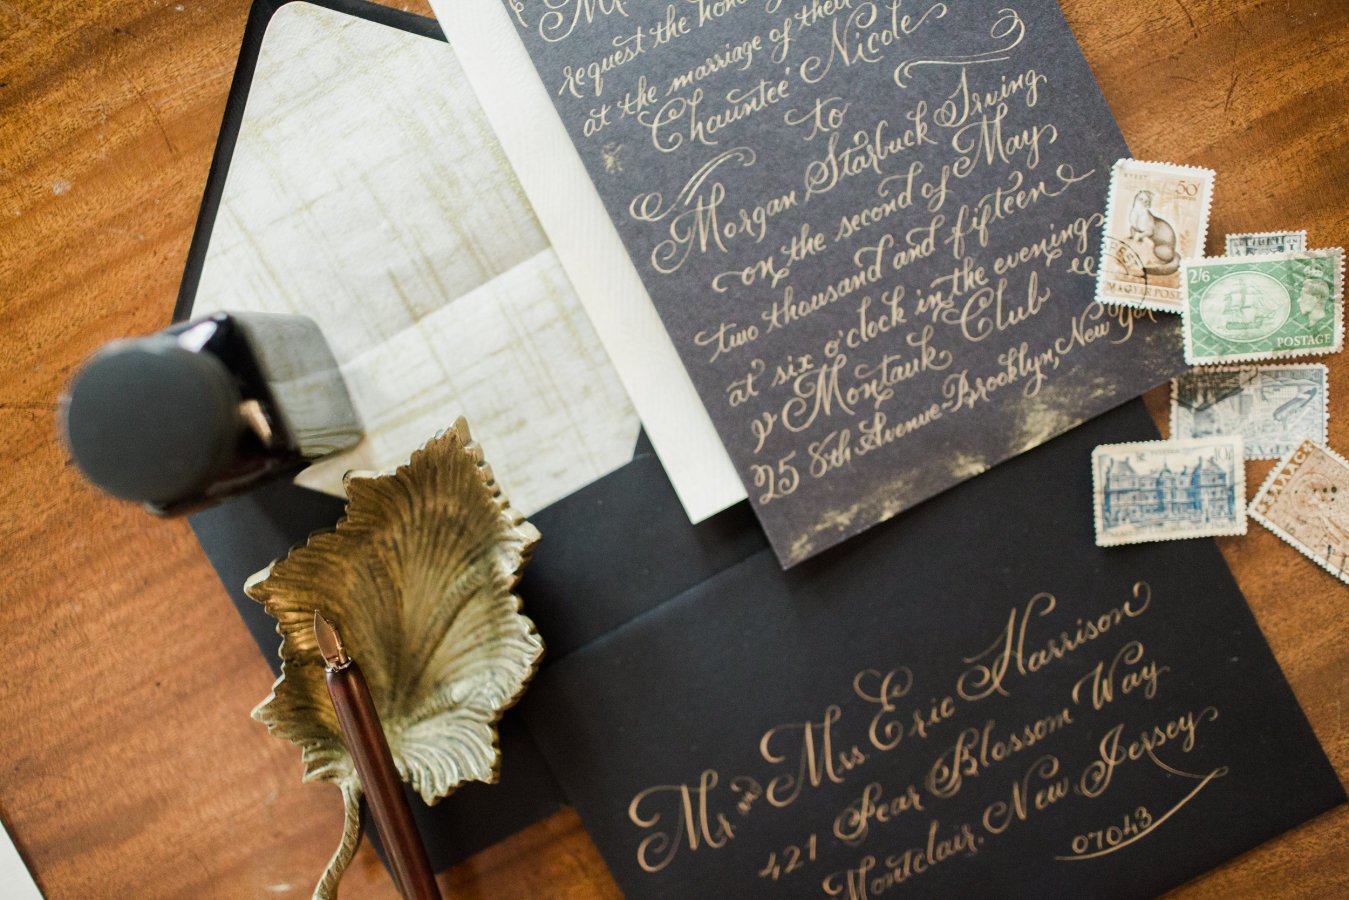 request the hono
at the marriage of their
Chauntee' Nicole
to
Morgan Starbuck Irving
on the second of May
two thousand and fifteen
at six o'clock in the evening
Montauk Club
25 8th Avenue - Brooklyn, New Yor
Mr. and Mrs. Eric Harrison
421 Pear Blossom Way
Montclair, New Jersey
07043
50f
MAGYAR POSTA
2/6
POSTAGE
10f